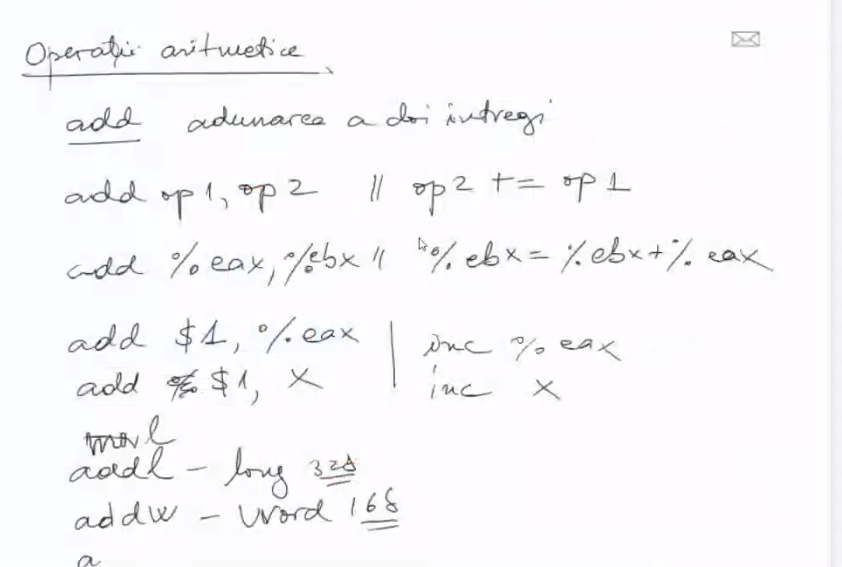 Operații aritmetice
add adunarea a doi întregi
add op1, op2 // op2 += op1
add %eax, %ebx // %ebx = %ebx + %eax
add $1, %eax | inc %eax
add $1, x | inc x
movl
addl - long 32b
addw - word 16b
a